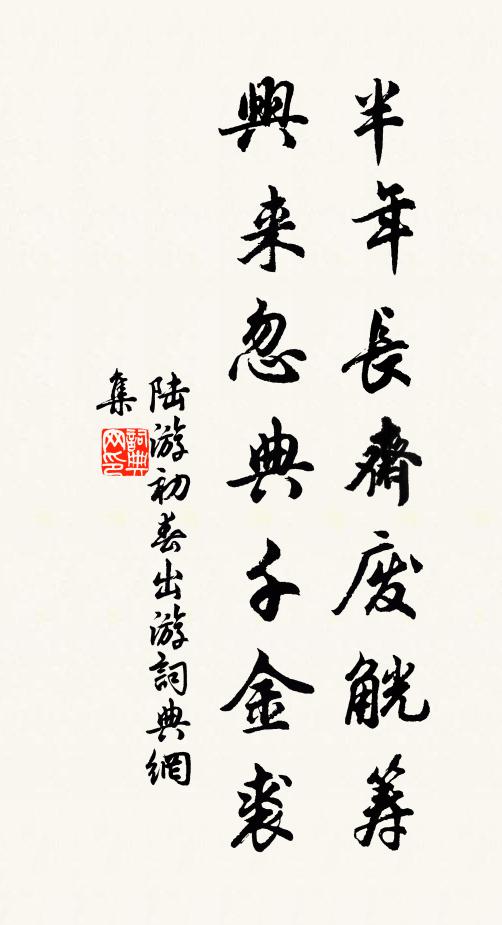 半年長齋廢觥籌
興来忽典千金裘
陆游初春出游詞典網
集
詞典网印